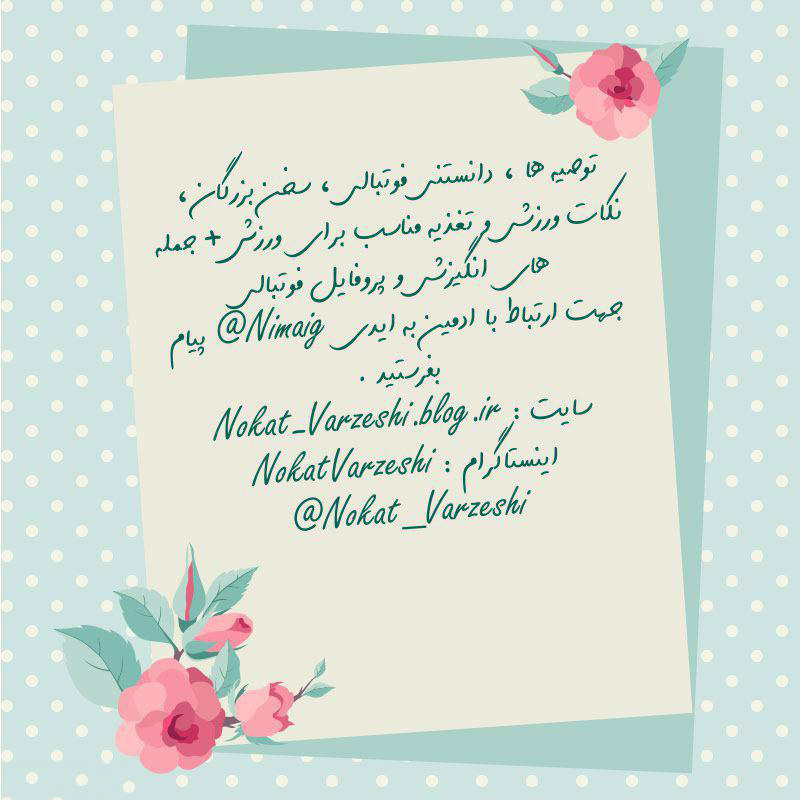 توصیه ها ، دانستنی فوتبالی ، سخن بزرگان ،
نکات ورزشی و تغذیه مناسب برای ورزش + جمله
های انگیزشی و پروفایل فوتبالی
جهت ارتباط با ادمین به ایدی @Nimaig پیام
بفرستید .
سایت : Nokat_Varzeshi.blog.ir
اینستاگرام : NokatVarzeshi
@Nokat_Varzeshi